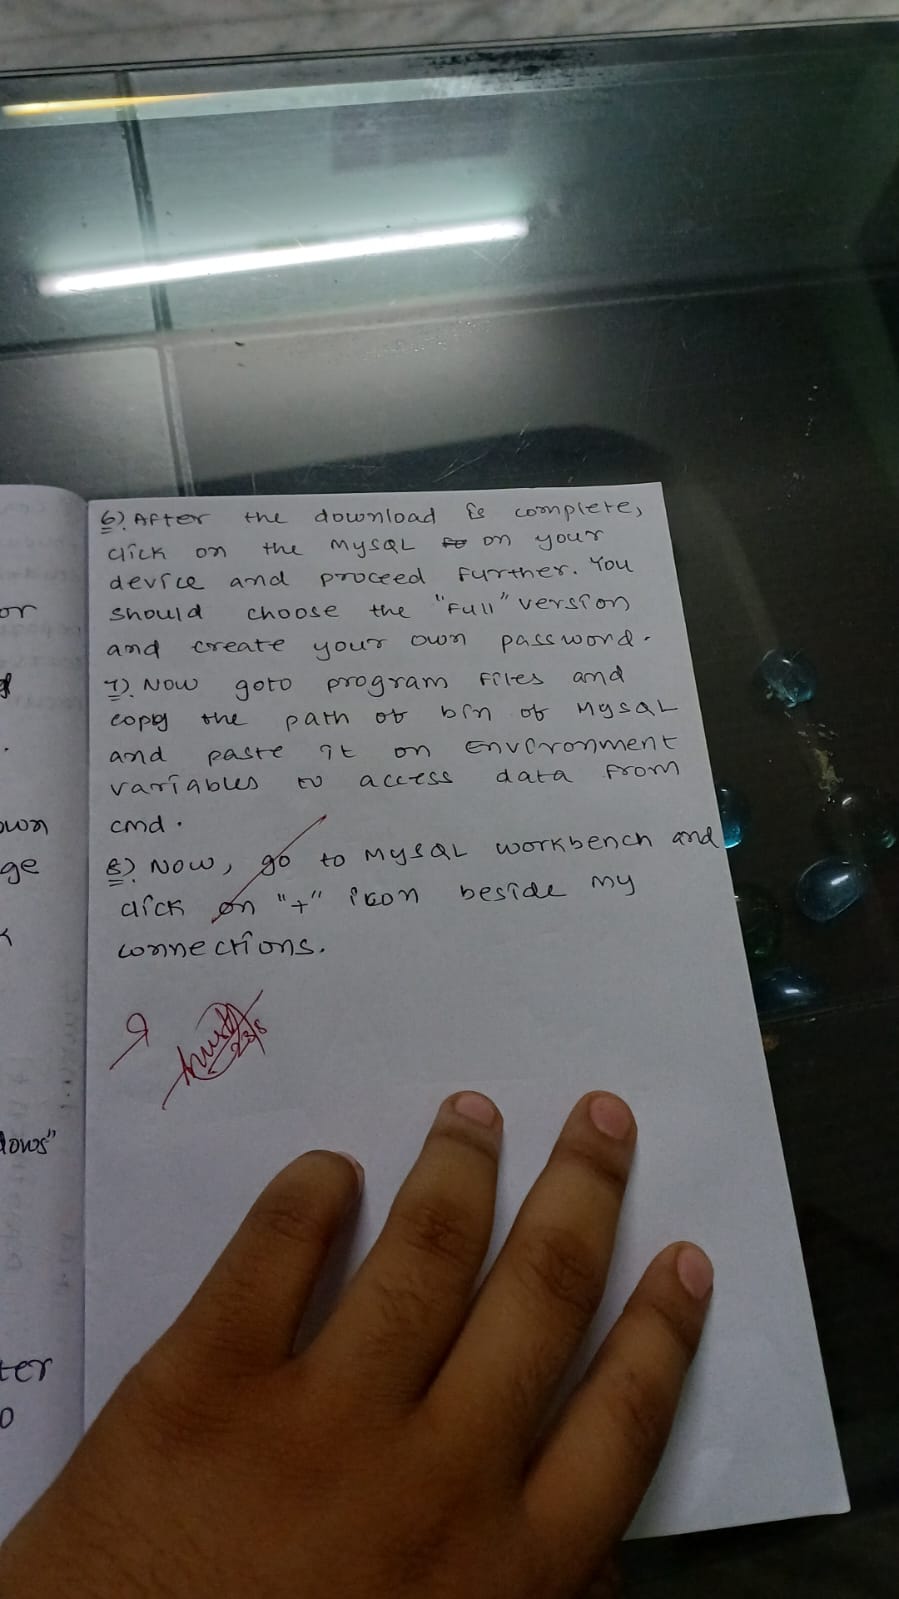 6). After the download is complete,
click on the MySQL on your
device and proceed further. You
should choose the "Full" version
and create your own password.
7). Now goto program files and
copy the path of bin of MySQL
and paste it on Environment
variables to access data from
cmd.
8). Now, go to MySQL workbench and
click on "+" icon beside my
connections.
23/8
or
own
ge
dows"
ter